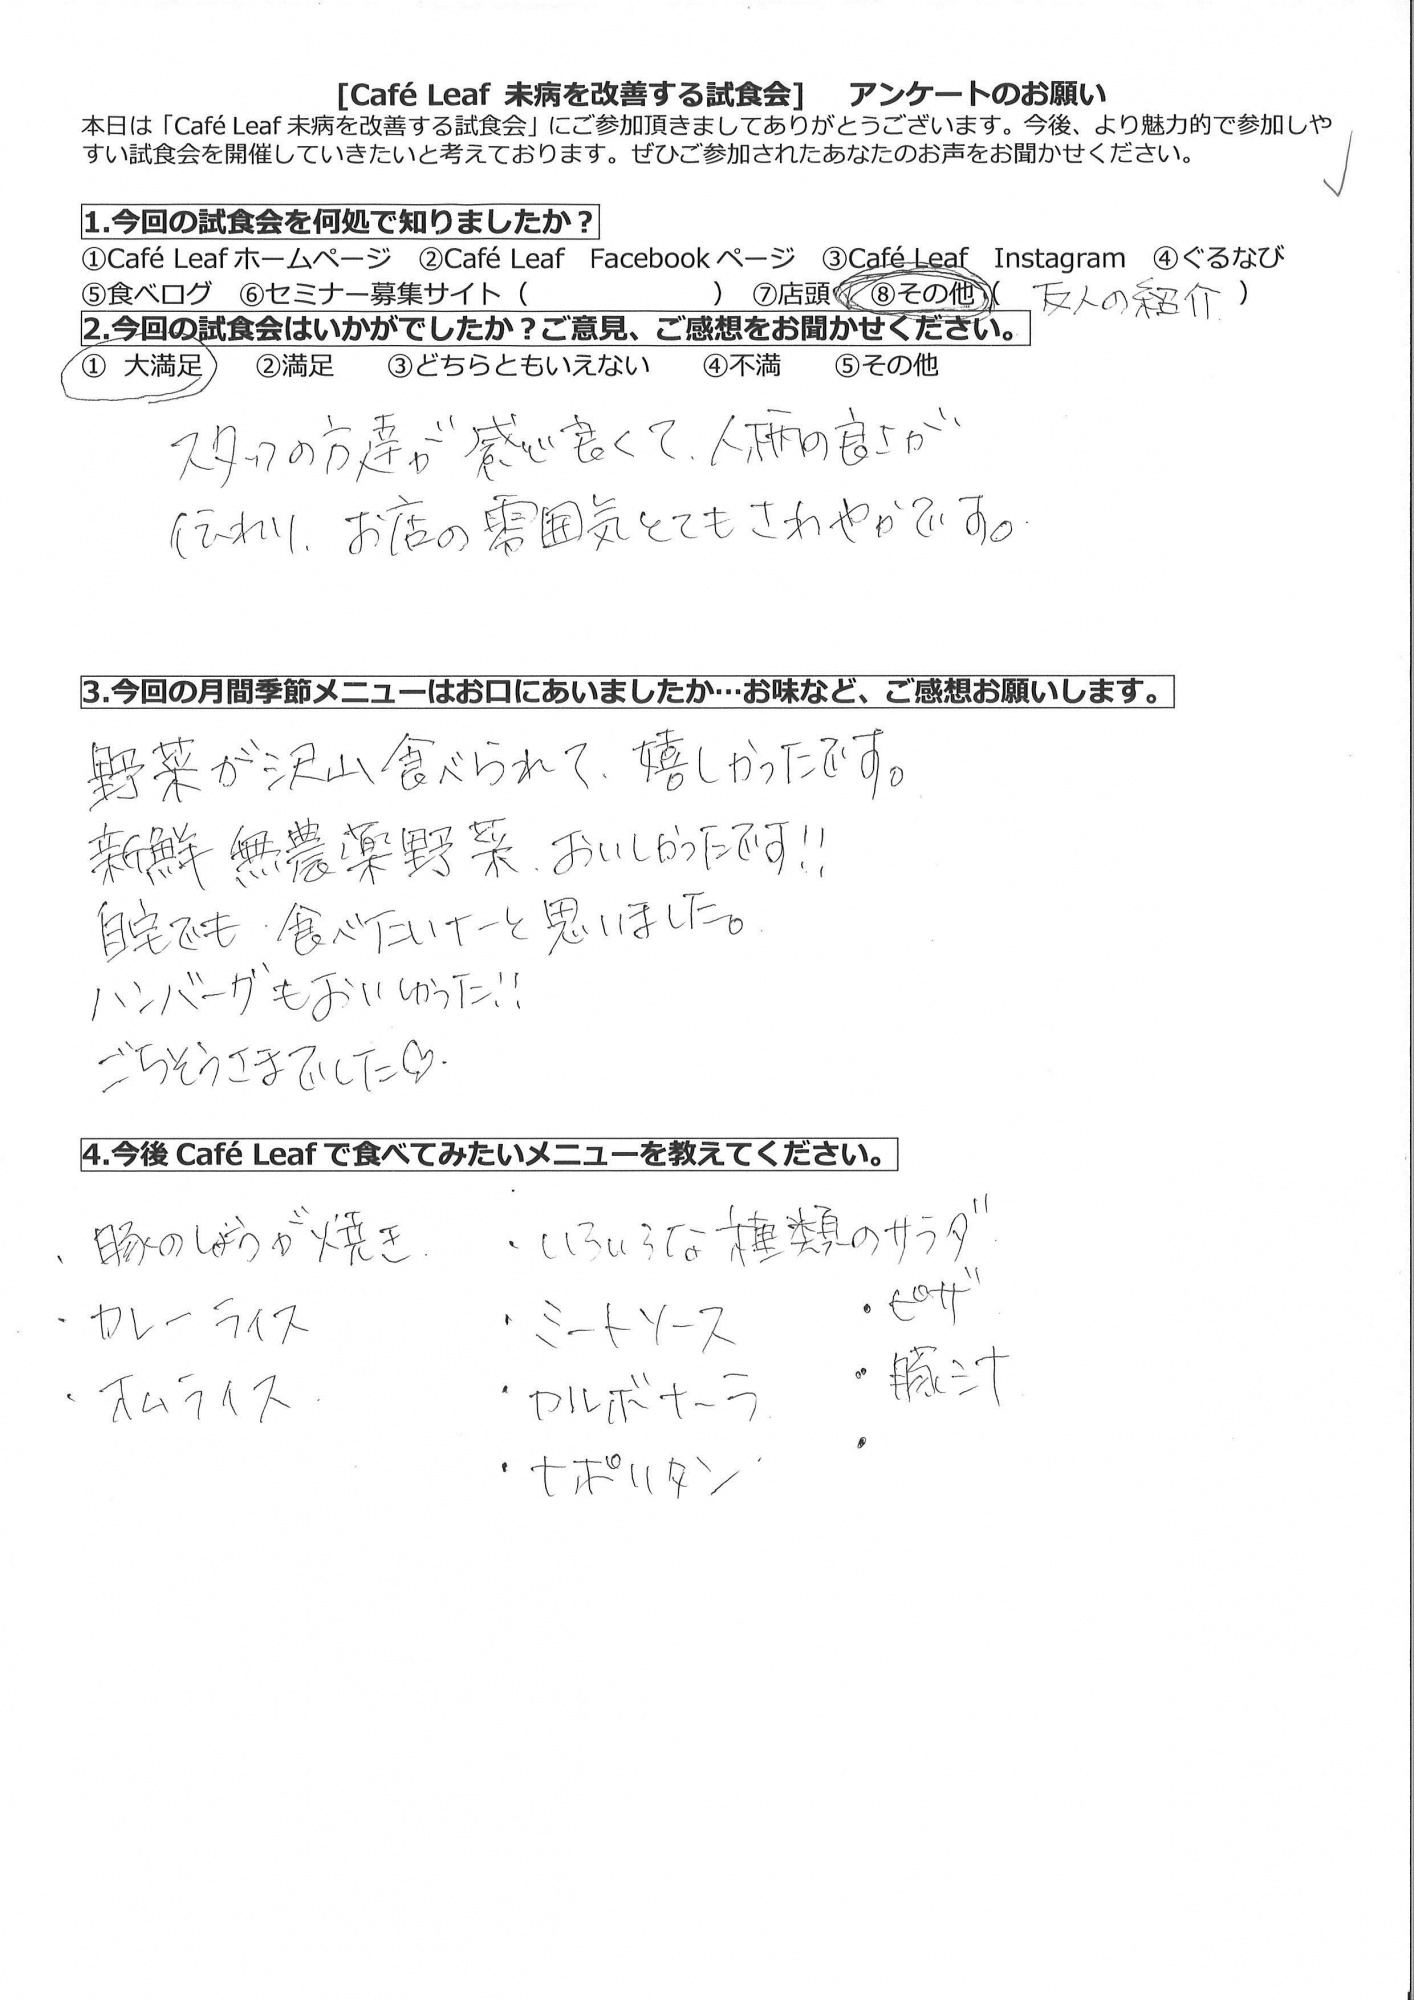 [Café Leaf 未病を改善する試食会]　アンケートのお願い
本日は「Café Leaf 未病を改善する試食会」にご参加頂きましてありがとうございます。今後、より魅力的で参加しや
すい試食会を開催していきたいと考えております。ぜひご参加されたあなたのお声をお聞かせください。
1.今回の試食会を何処で知りましたか？
①Café Leaf ホームページ　②Café Leaf　Facebook ページ　③Café Leaf　Instagram　④ぐるなび
⑤食べログ　⑥セミナー募集サイト（　　　　　　　）　⑦店頭　⑧その他（　友人の紹介　）
2.今回の試食会はいかがでしたか？ご意見、ご感想をお聞かせください。
①　大満足　　②満足　　③どちらともいえない　　④不満　　⑤その他
スタッフの方達が感じ良くて、人柄の良さが
伝わり、お店の雰囲気とてもさわやかです。
3.今回の月間季節メニューはお口にあいましたか…お味など、ご感想お願いします。
野菜が沢山食べられて、嬉しかったです。
新鮮 無農薬野菜、おいしかったです!!
自宅でも 食べたいナーと思いました。
ハンバーグもおいしかった!!
ごちそうさまでした♡.
4.今後 Café Leaf で食べてみたいメニューを教えてください。
、豚のしょうが焼き　・いろいろな種類のサラダ
・カレーライス　・ミートソース　・ピザ
・オムライス　・カルボナーラ　・豚汁
・ナポリタン　・